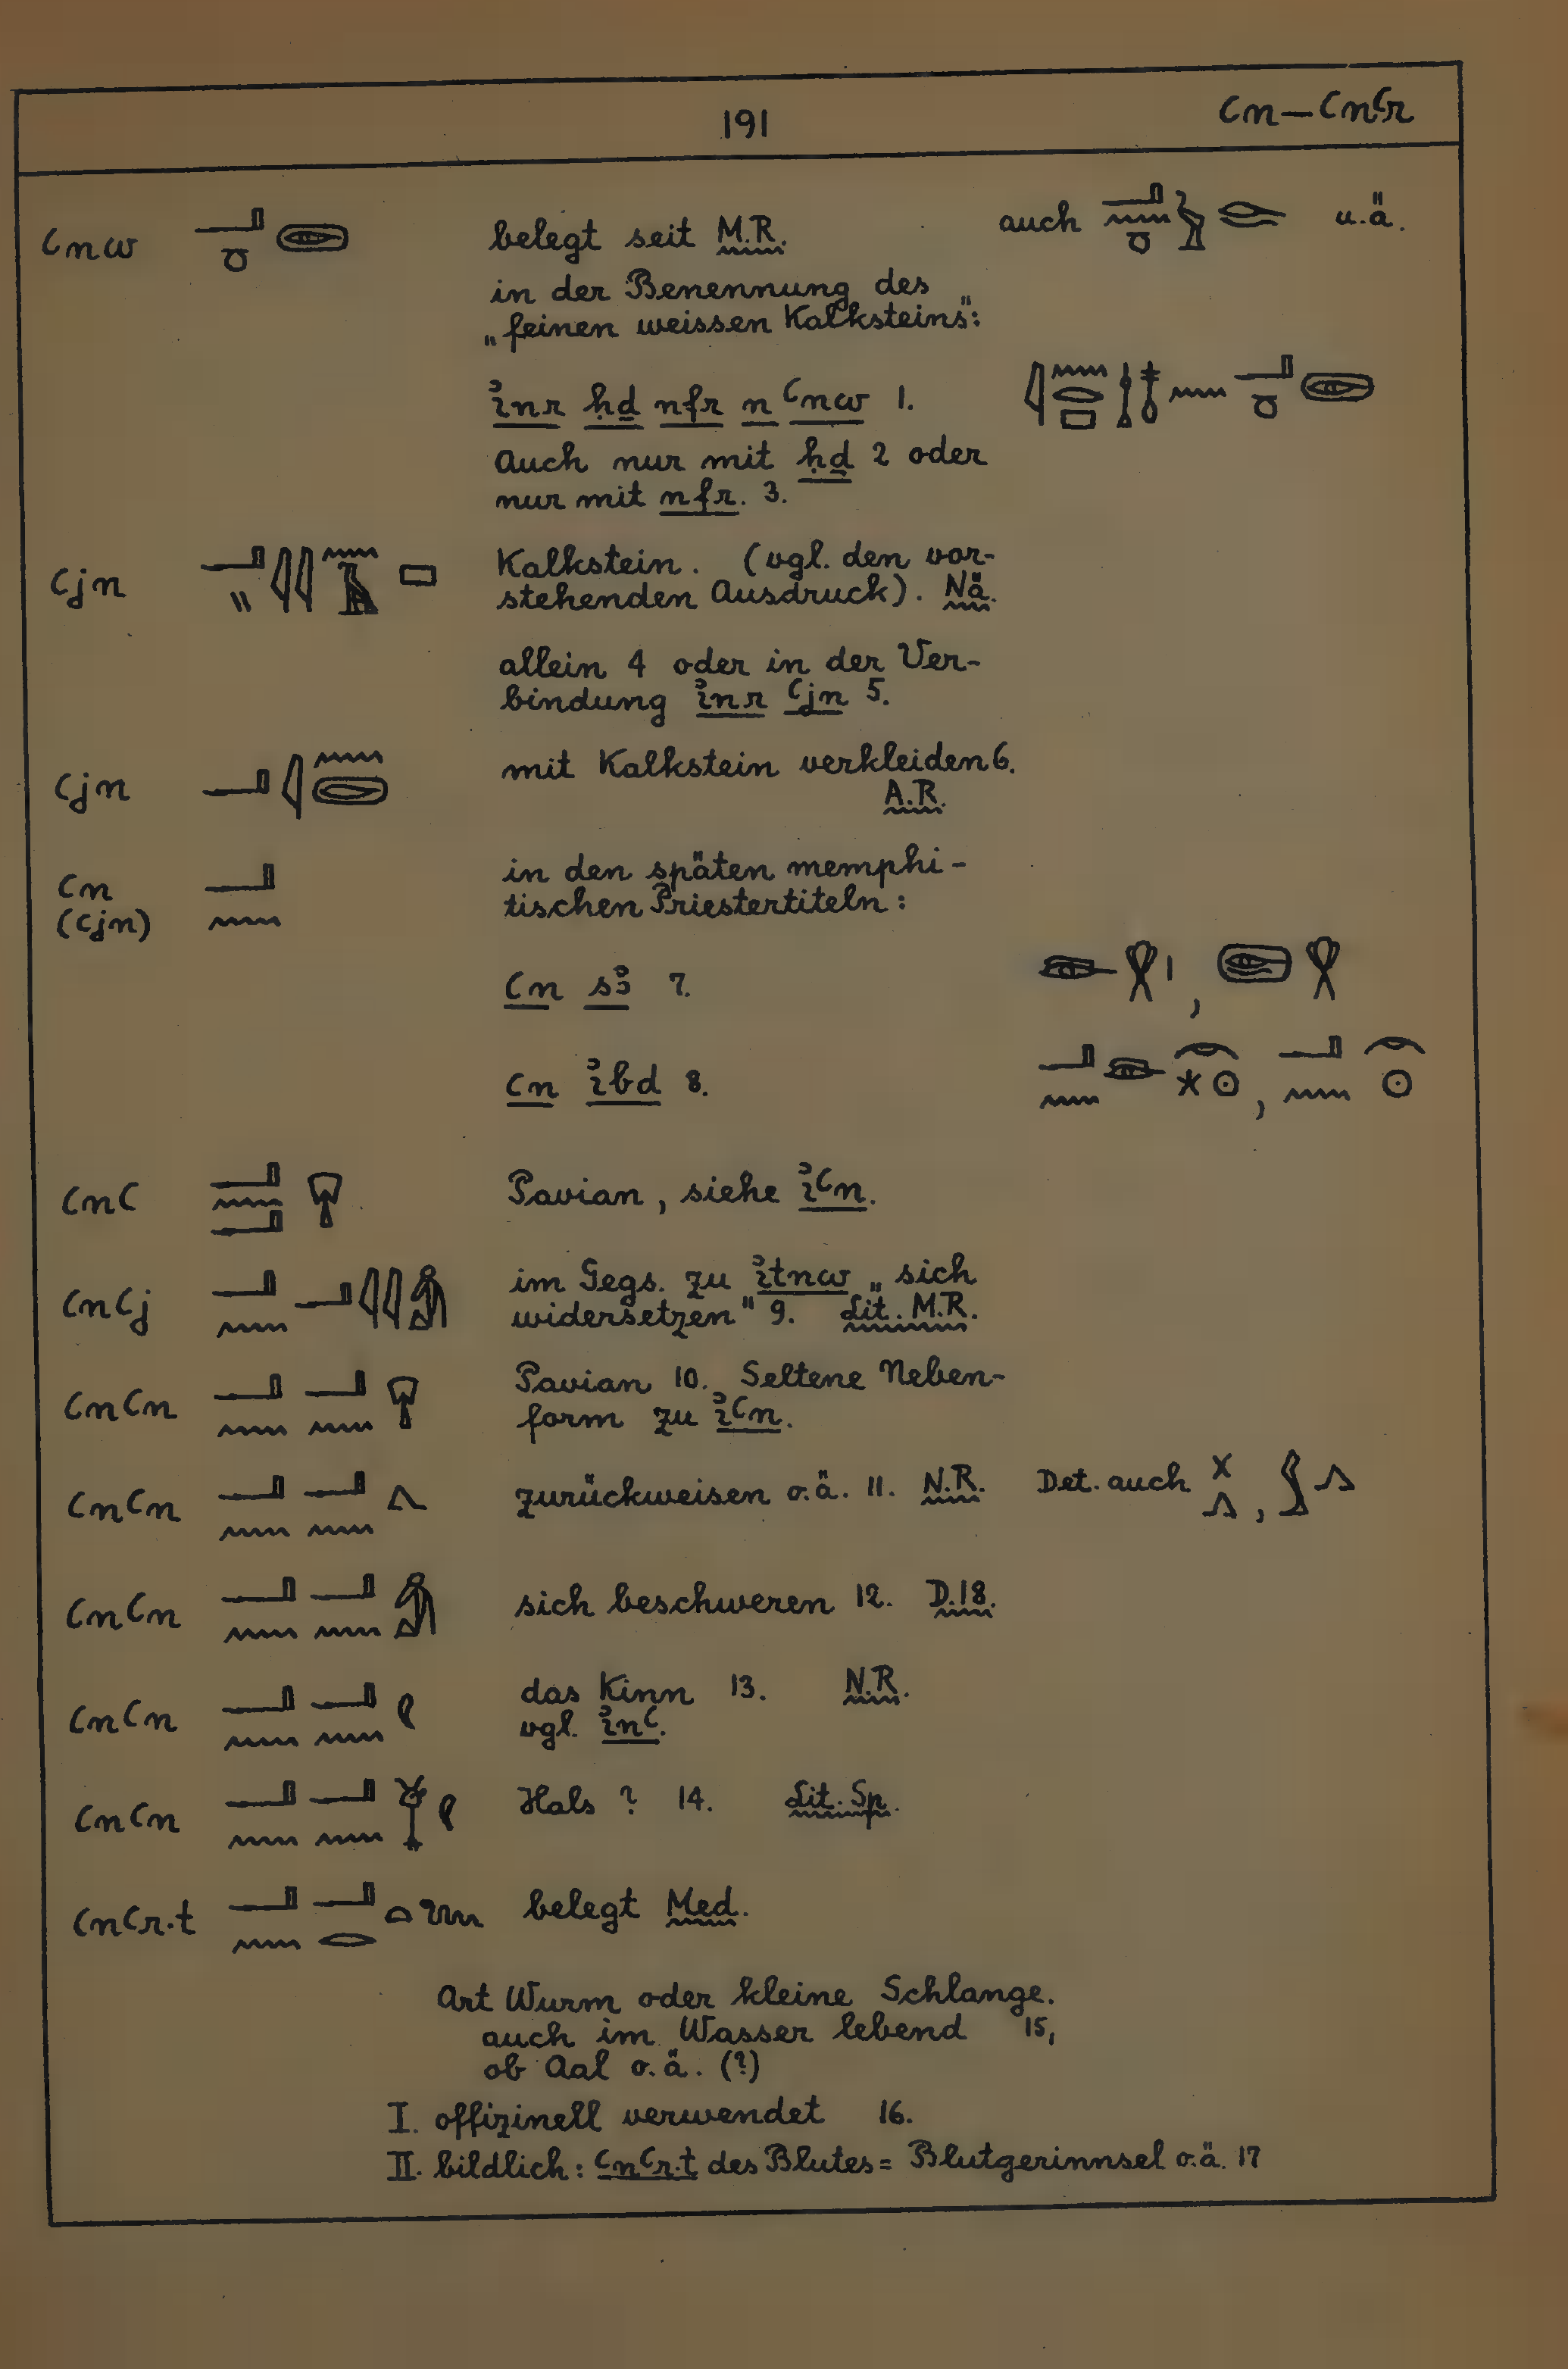 191 ꜥn — ꜥnꜥr
ꜥnw belegt seit M.R. auch u.ä.
in der Benennung des
„feinen weissen Kalksteins":
i͗nr ḥḏ nfr n ꜥnw 1.
Auch nur mit ḥḏ 2 oder
nur mit nfr. 3.
ꜥjn Kalkstein. (vgl. den vor-
stehenden Ausdruck). Nä.
allein 4 oder in der Ver-
bindung i͗nr ꜥjn 5.
ꜥjn mit Kalkstein verkleiden 6.
A.R.
ꜥn in den späten memphi-
(ꜥjn) tischen Priestertiteln:
ꜥn sꜣ 7.
ꜥn i͗bd 8.
ꜥnꜥ Pavian, siehe i͗ꜥn.
ꜥnꜥj im Gegs. zu i͗tnw „sich
widersetzen" 9. Lit. M.R.
ꜥnꜥn Pavian 10. Seltene Neben-
form zu i͗ꜥn.
ꜥnꜥn zurückweisen o.ä. 11. N.R. Det. auch
ꜥnꜥn sich beschweren 12. D.18.
ꜥnꜥn das Kinn 13. N.R.
vgl. i͗nꜥ.
ꜥnꜥn Hals ? 14. Lit. Sp.
ꜥnꜥr.t belegt Med.
Art Wurm oder kleine Schlange.
auch im Wasser lebend 15,
ob Aal o.ä. (?)
I. offizinell verwendet 16.
II. bildlich: ꜥnꜥr.t des Blutes = Blutgerinnsel o.ä. 17